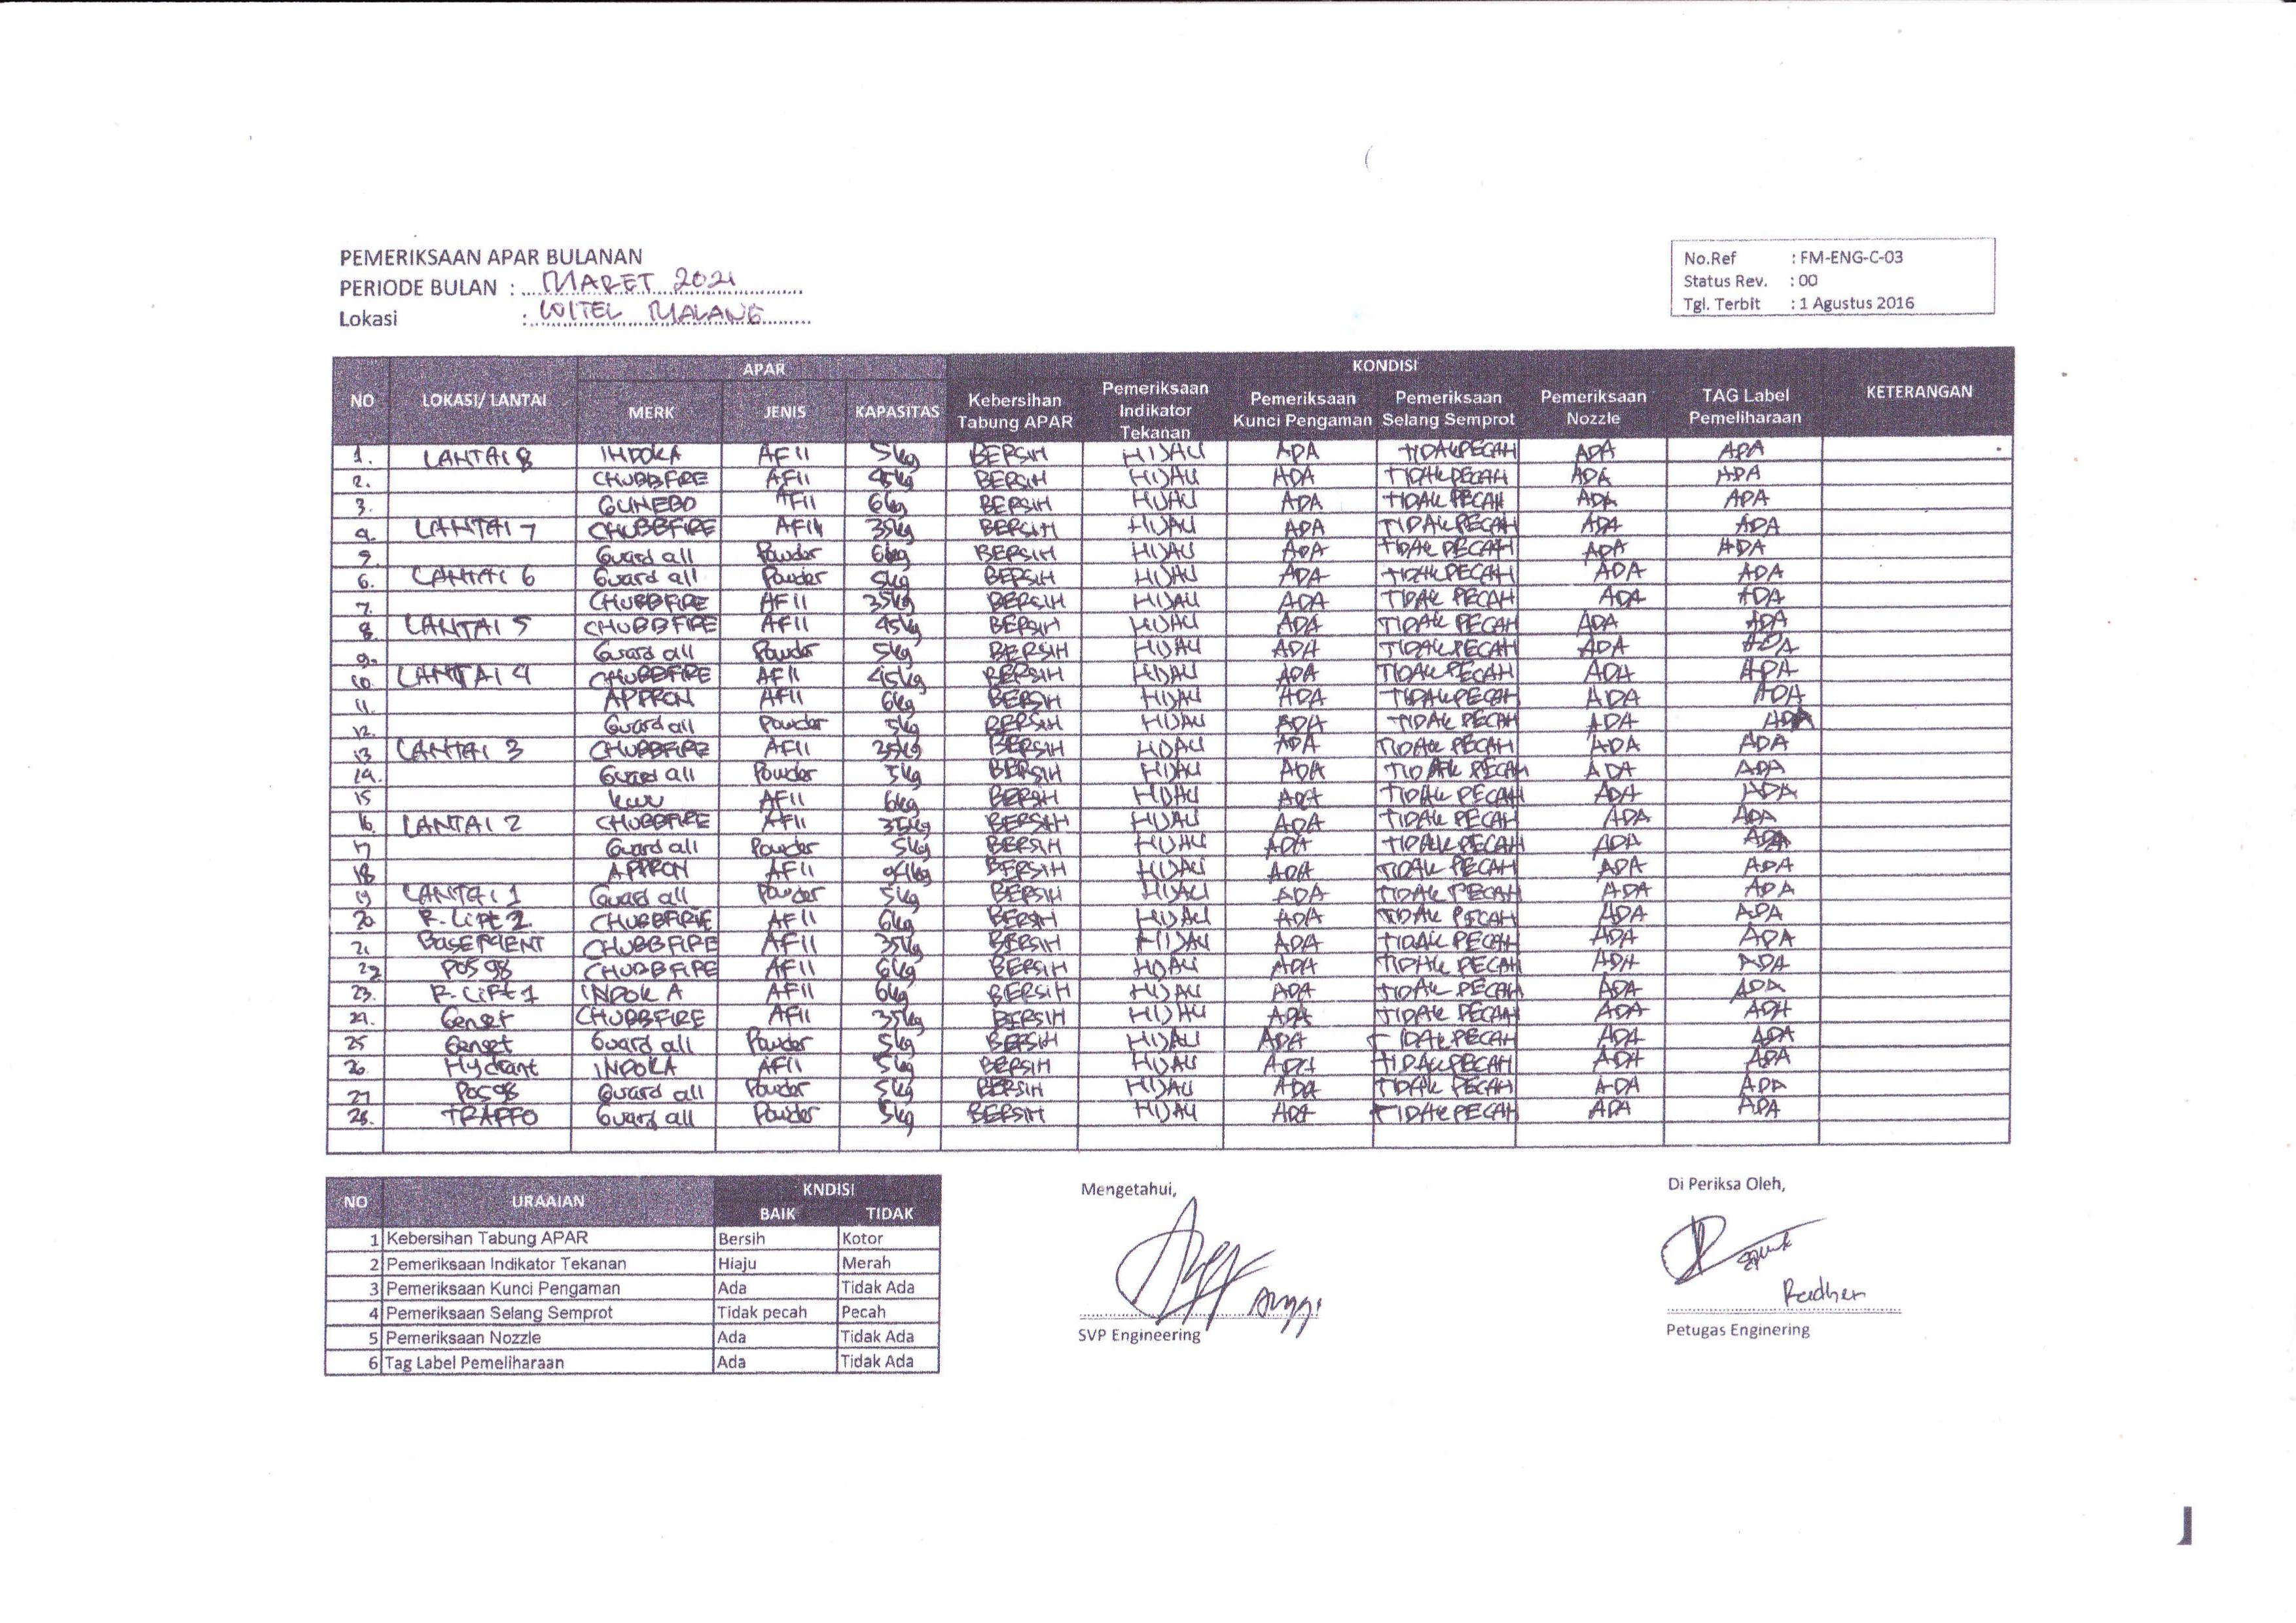 PEMERIKSAAN APAR BULANAN
PERIODE BULAN : MARET 2021
Lokasi : WITEL MALANG
No.Ref : FM-ENG-C-03
Status Rev. : 00
Tgl. Terbit : 1 Agustus 2016
NO LOKASI/ LANTAI APAR KONDISI KETERANGAN
MERK JENIS KAPASITAS Kebersihan Tabung APAR Pemeriksaan Indikator Tekanan Pemeriksaan Kunci Pengaman Pemeriksaan Selang Semprot Pemeriksaan Nozzle TAG Label Pemeliharaan
1. LANTAI 8 INDOKA AF11 5kg BERSIH HIJAU ADA TIDAK PECAH ADA ADA
2. CHUBBFIRE AF11 45kg BERSIH HIJAU ADA TIDAK PECAH ADA ADA
3. GUNEBO AF11 6kg BERSIH HIJAU ADA TIDAK PECAH ADA ADA
4. LANTAI 7 CHUBBFIRE AF11 35kg BERSIH HIJAU ADA TIDAK PECAH ADA ADA
5. Guard all Powder 6kg BERSIH HIJAU ADA TIDAK PECAH ADA ADA
6. LANTAI 6 Guard all Powder 5kg BERSIH HIJAU ADA TIDAK PECAH ADA ADA
7. CHUBBFIRE AF11 35kg BERSIH HIJAU ADA TIDAK PECAH ADA ADA
8. LANTAI 5 CHUBBFIRE AF11 45kg BERSIH HIJAU ADA TIDAK PECAH ADA ADA
9. Guard all Powder 5kg BERSIH HIJAU ADA TIDAK PECAH ADA ADA
10. LANTAI 4 CHUBBFIRE AF11 45kg BERSIH HIJAU ADA TIDAK PECAH ADA ADA
11. APPRON AF11 6kg BERSIH HIJAU ADA TIDAK PECAH ADA ADA
12. Guard all Powder 5kg BERSIH HIJAU ADA TIDAK PECAH ADA ADA
13 LANTAI 3 CHUBBFIRE AF11 35kg BERSIH HIJAU ADA TIDAK PECAH ADA ADA
14. Guard all Powder 5kg BERSIH HIJAU ADA TIDAK PECAH ADA ADA
15 AF11 6kg BERSIH HIJAU ADA TIDAK PECAH ADA ADA
16. LANTAI 2 CHUBBFIRE AF11 35kg BERSIH HIJAU ADA TIDAK PECAH ADA ADA
17 Guard all Powder 5kg BERSIH HIJAU ADA TIDAK PECAH ADA ADA
18 APPRON AF11 BERSIH HIJAU ADA TIDAK PECAH ADA ADA
19 LANTAI 1 Guard all Powder 5kg BERSIH HIJAU ADA TIDAK PECAH ADA ADA
20 R. Lift 2 CHUBBFIRE AF11 6kg BERSIH HIJAU ADA TIDAK PECAH ADA ADA
21 BASEMENT CHUBBFIRE AF11 35kg BERSIH HIJAU ADA TIDAK PECAH ADA ADA
22 POS 98 CHUBBFIRE AF11 6kg BERSIH HIJAU ADA TIDAK PECAH ADA ADA
23. R. Lift 1 INDOKA AF11 6kg BERSIH HIJAU ADA TIDAK PECAH ADA ADA
24. Genset CHUBBFIRE AF11 35kg BERSIH HIJAU ADA TIDAK PECAH ADA ADA
25 Genset Guard all Powder 5kg BERSIH HIJAU ADA TIDAK PECAH ADA ADA
26. Hydrant INDOKA AF11 5kg BERSIH HIJAU ADA TIDAK PECAH ADA ADA
27 Pos 98 Guard all Powder 5kg BERSIH HIJAU ADA TIDAK PECAH ADA ADA
28. TRAFFO Guard all Powder 5kg BERSIH HIJAU ADA TIDAK PECAH ADA ADA
NO URAAIAN KNDISI
BAIK TIDAK
1 Kebersihan Tabung APAR Bersih Kotor
2 Pemeriksaan Indikator Tekanan Hiaju Merah
3 Pemeriksaan Kunci Pengaman Ada Tidak Ada
4 Pemeriksaan Selang Semprot Tidak pecah Pecah
5 Pemeriksaan Nozzle Ada Tidak Ada
6 Tag Label Pemeliharaan Ada Tidak Ada
Mengetahui,
Anggi
SVP Engineering
Di Periksa Oleh,
Petugas Enginering